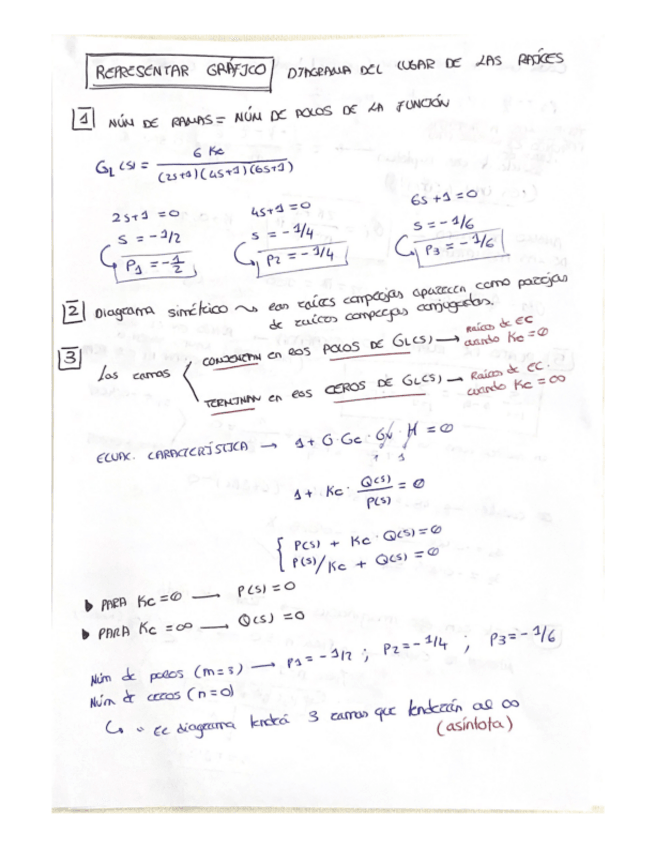 REPRESENTAR GRÁFICO DIAGRAMA DEL LUGAR DE LAS RAÍCES
1 NÚM DE RAMAS = NÚM DE POLOS DE LA FUNCIÓN
GL(s) = 6 Kc / (2s+1)(4s+1)(6s+1)
2s+1 = 0 4s+1 = 0 6s+1 = 0
s = -1/2 s = -1/4 s = -1/6
P1 = -1/2 P2 = -1/4 P3 = -1/6
2 Diagrama simétrico ~> las raíces complejas aparecen como parejas
de raíces complejas conjugadas.
3 Las ramas
COMIENZAN en los POLOS DE GL(s) → Raíces de EC cuando Kc = 0
TERMINAN en los CEROS DE GL(s) → Raíces de EC. cuando Kc = ∞
ECUAC. CARACTERÍSTICA → 1 + G·Gc·Gv·H = 0
1 1
1 + Kc · Q(s)/P(s) = 0
P(s) + Kc · Q(s) = 0
P(s)/Kc + Q(s) = 0
▸ PARA Kc = 0 → P(s) = 0
▸ PARA Kc = ∞ → Q(s) = 0
Núm de polos (m=3) → P1 = -1/2 ; P2 = -1/4 ; P3 = -1/6
Núm de ceros (n=0)
↳ el diagrama tendrá 3 ramas que tenderán al ∞
(asíntota)